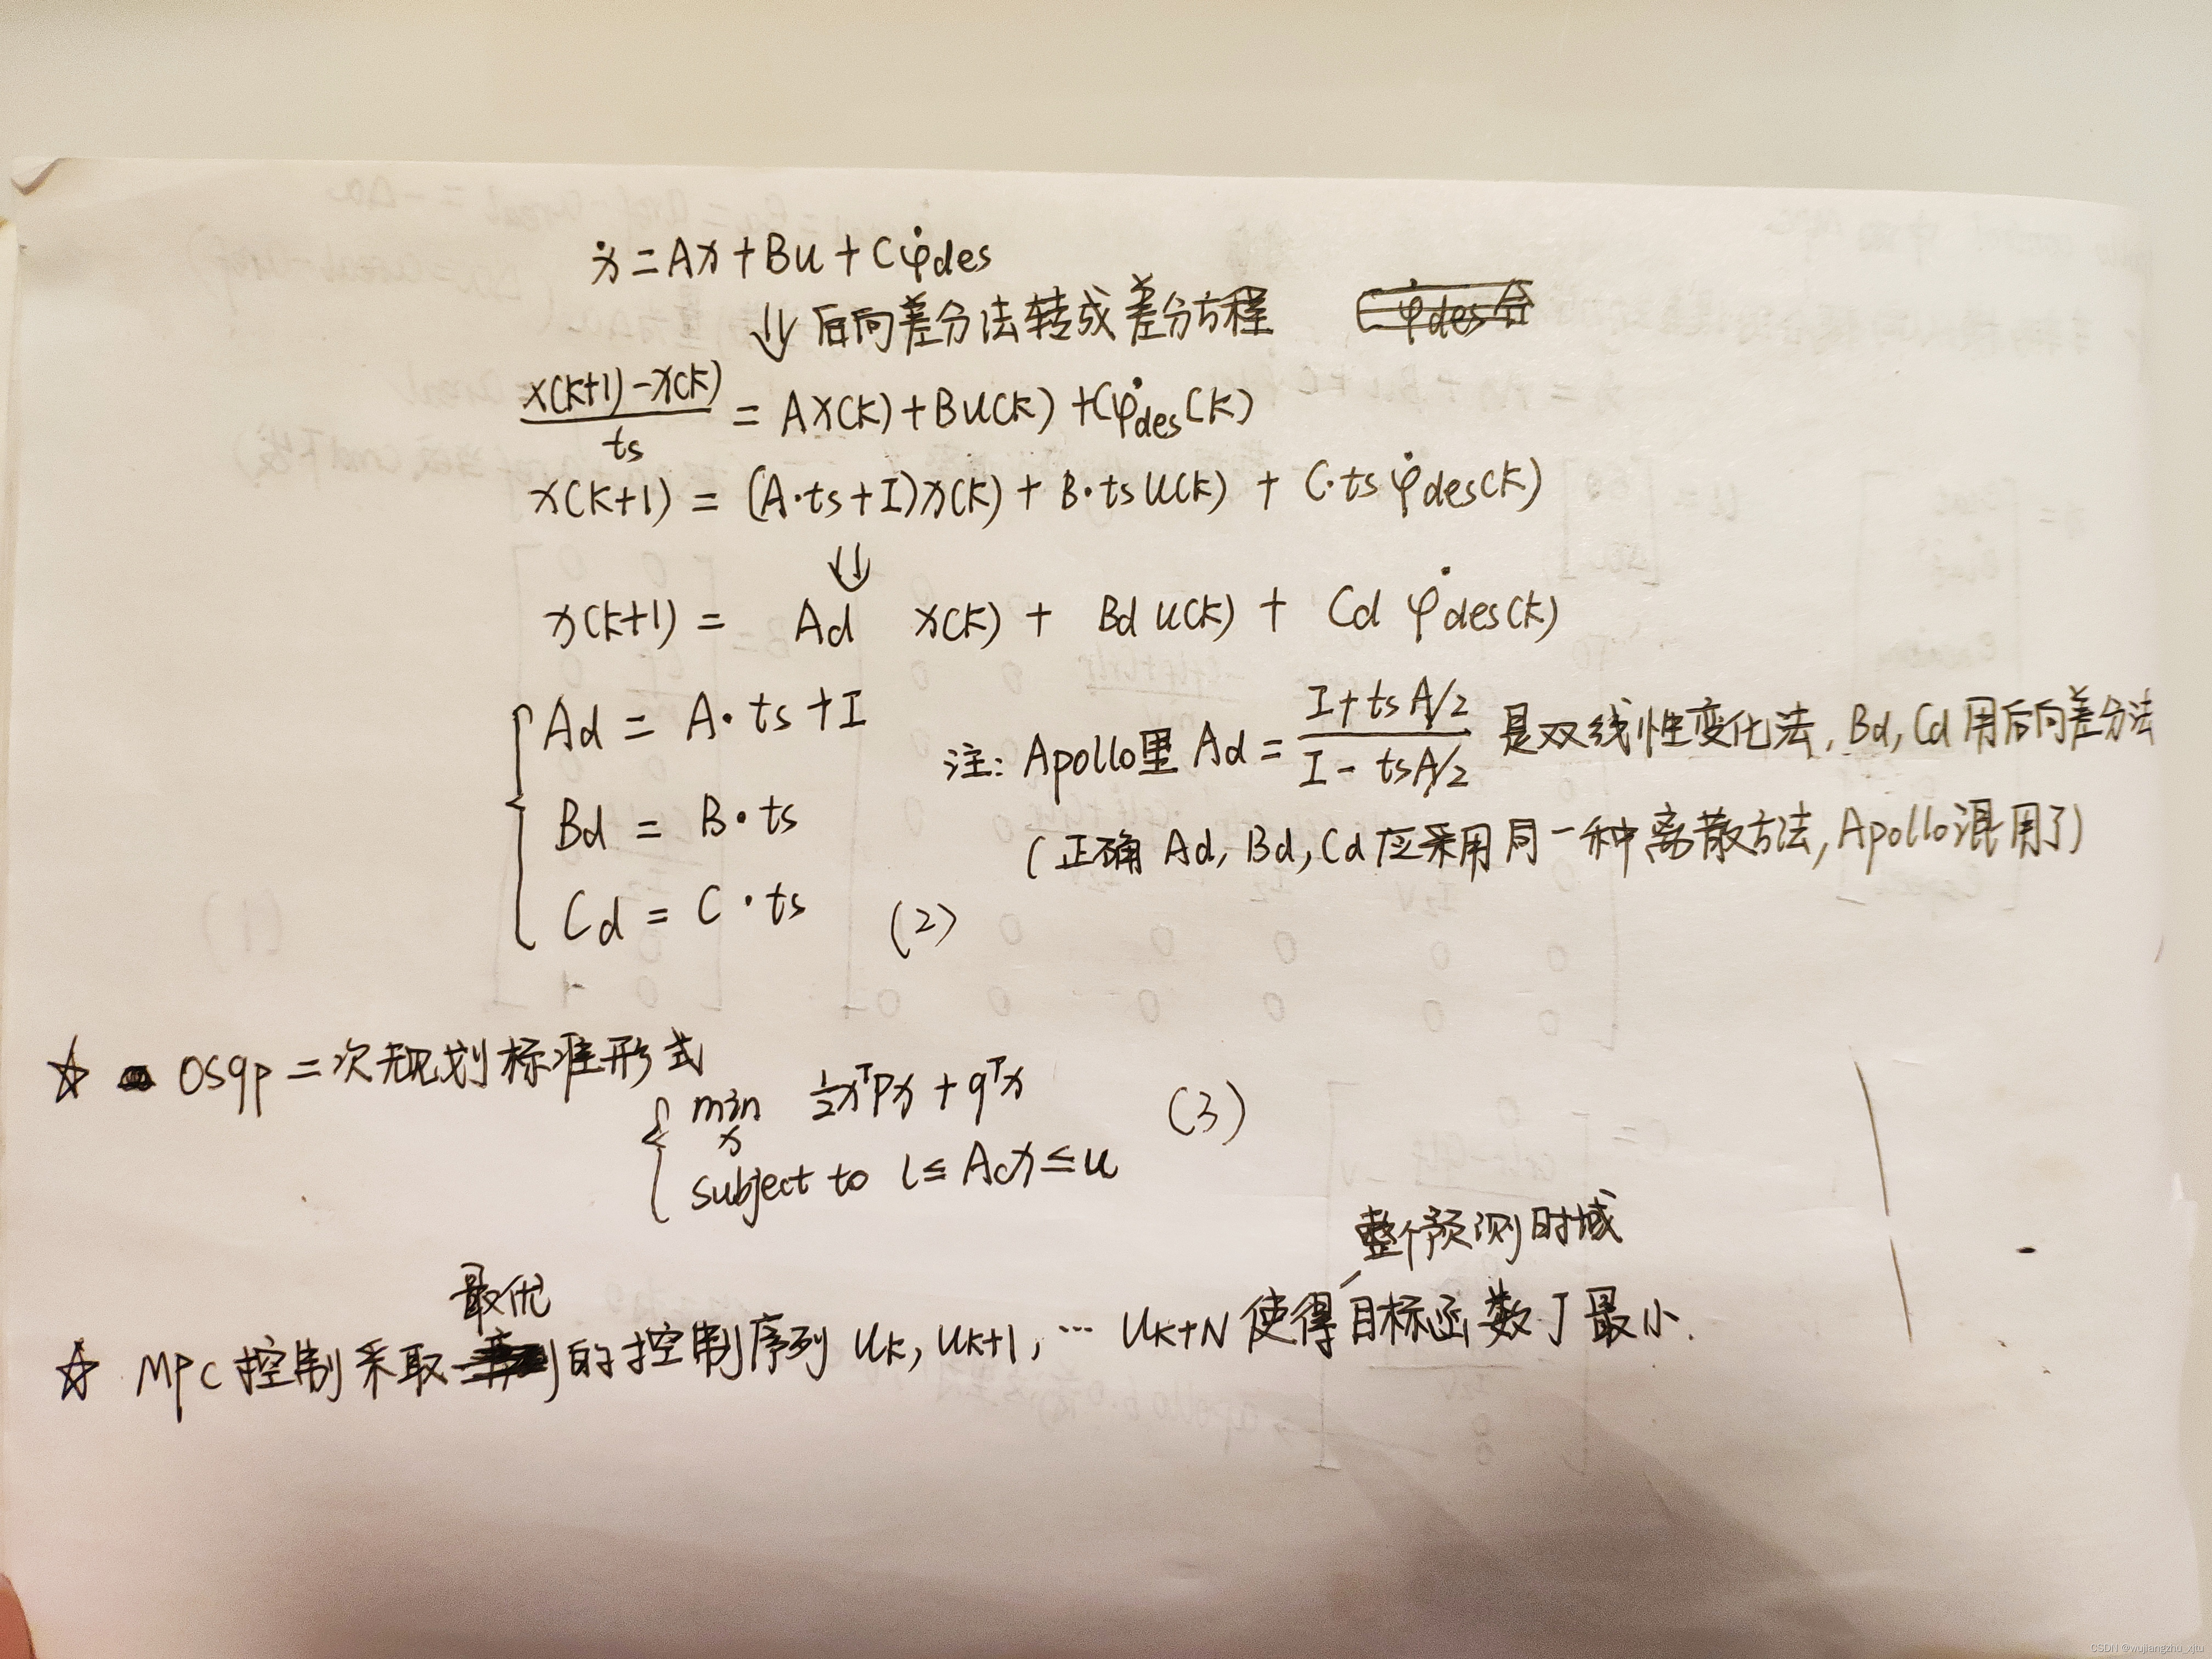 ẋ = Ax + Bu + Cφ̇des
⇓ 后向差分法转成差分方程
(x(k+1) - x(k))/ts = Ax(k) + Bu(k) + Cφ̇des(k)
x(k+1) = (A·ts+I)x(k) + B·ts u(k) + C·ts φ̇des(k)
⇓
x(k+1) = Ad x(k) + Bd u(k) + Cd φ̇des(k)
Ad = A·ts + I
注: Apollo里 Ad = (I + ts A/2)/(I - ts A/2) 是双线性变化法, Bd, Cd 用后向差分法
Bd = B·ts
(正确 Ad, Bd, Cd 应采用同一种离散方法, Apollo混用了)
Cd = C·ts (2)
☆ osqp二次规划标准形式
min x ½xᵀPx + qᵀx (3)
subject to l ≤ Acx ≤ u
整个预测时域
最优
☆ MPC控制采取的控制序列 uk, uk+1, … uk+N 使得目标函数J最小.
CSDN @wujiangzhu_xjtu